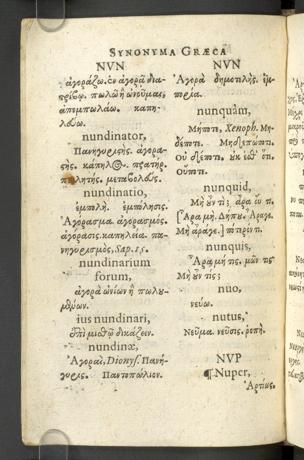 SYNONYMA GRÆCA
NVN
ἀγοράζω. ἐν ἀγορᾷ δια-
πωλῶ ἢ ὠνοῦμαι,
ἀπεμπωλάω. καπη-
λεύω.
nundinator,
Πανηγυριστὴς. ἀγορα-
στὴς. κάπηλος. πρατὴρ.
πωλητής. μεταβολεὺς.
nundinatio,
ἐμπολὴ. ἐμπόλησις.
Ἀγόρασμα. ἀγορασμὸς.
ἀγόρασις. καπηλεία. πα-
νηγυρισμὸς, Sap. 15.
nundinarium
forum,
ἀγορὰ ὠνίων ἢ πωλου-
μένων.
ius nundinari,
ἐπὶ μισθῷ δικάζειν.
nundinæ,
Ἀγοραὶ, Dionys. Πανή-
γυρις. Παντοπώλιον.
NVN
Ἀγορὰ δημοτελὴς. ἐμ-
πορία.
nunquàm,
Μήποτε, Xenoph. Μη-
δέποτε. Μηδεπώποτε.
Οὐδέποτε. οὐκ ἔσθ' ὅτε.
Οὔποτε.
nunquid,
Μὴ γάρ τί; ἆρα
Ἆρα μή. Δήπου. Ἆραγε.
Μὴ ἄραγε.
nunquis,
Ἆρα μή τις. μῶν τις
Μὴ γάρ τίς;
nuo,
νεύω.
nutus,
Νεῦμα. νεῦσις. ῥοπὴ.
NVP
¶Nuper,
Ἄρτιως.